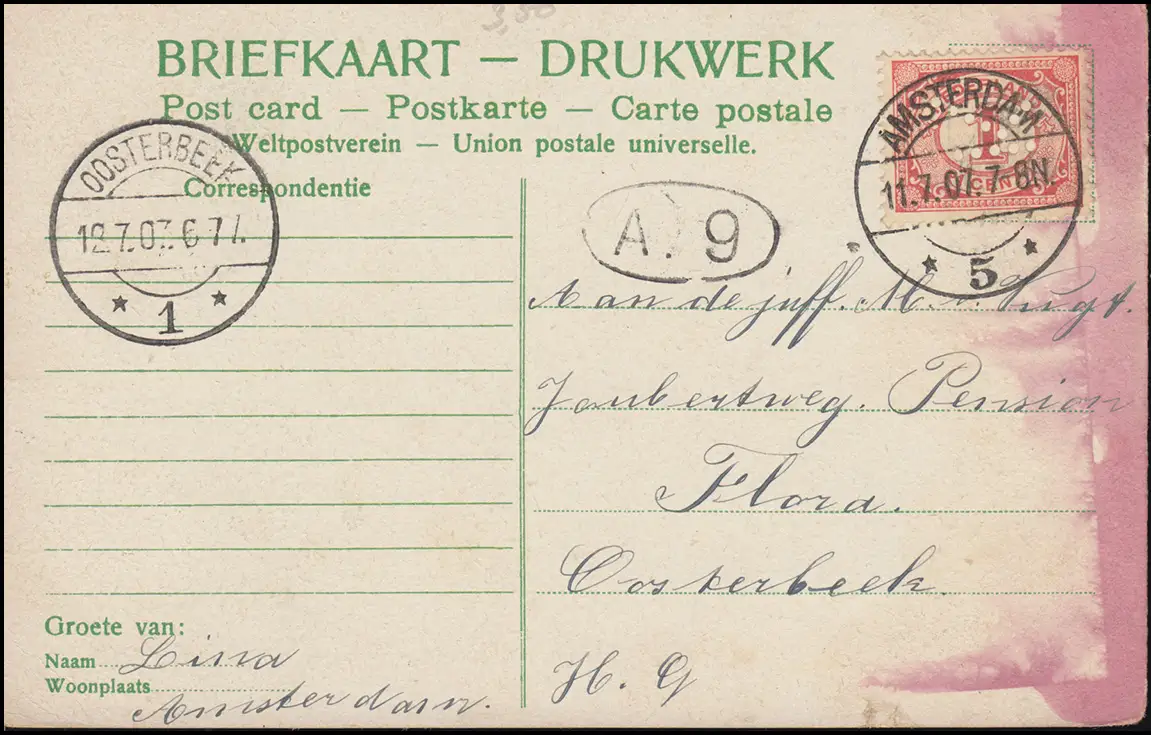 3,50
BRIEFKAART — DRUKWERK
Post card — Postkarte — Carte postale
Weltpostverein — Union postale universelle.
Correspondentie
OOSTERBEEK
12.7.07. 6-7
1
A. 9
AMSTERDAM
11.7.07.7-8N
5
1
CENT
Aan de juff. M. v. Vugt.
Joubertweg. Pension
Flora.
Oosterbeek.
H. G
Groete van:
Naam Lina
Woonplaats Amsterdam.